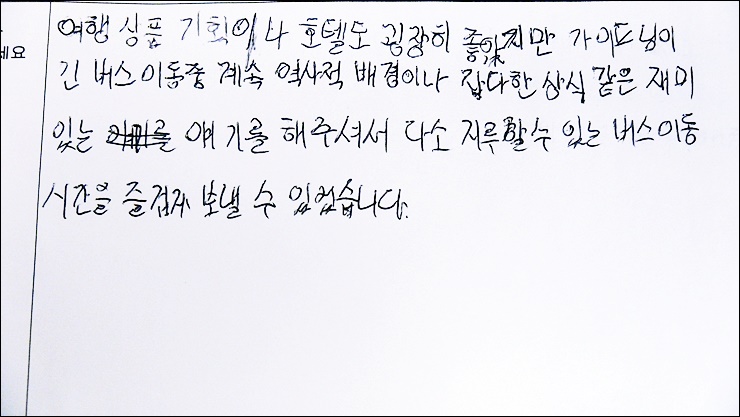 세요
여행 상품 기획이나 호텔도 굉장히 좋았지만 가이드님이
긴 버스이동중 계속 역사적 배경이나 잡다한 상식 같은 재미
있는 얘기를 해주셔서 다소 지루할수 있는 버스이동
시간을 즐겁게 보낼 수 있었습니다.